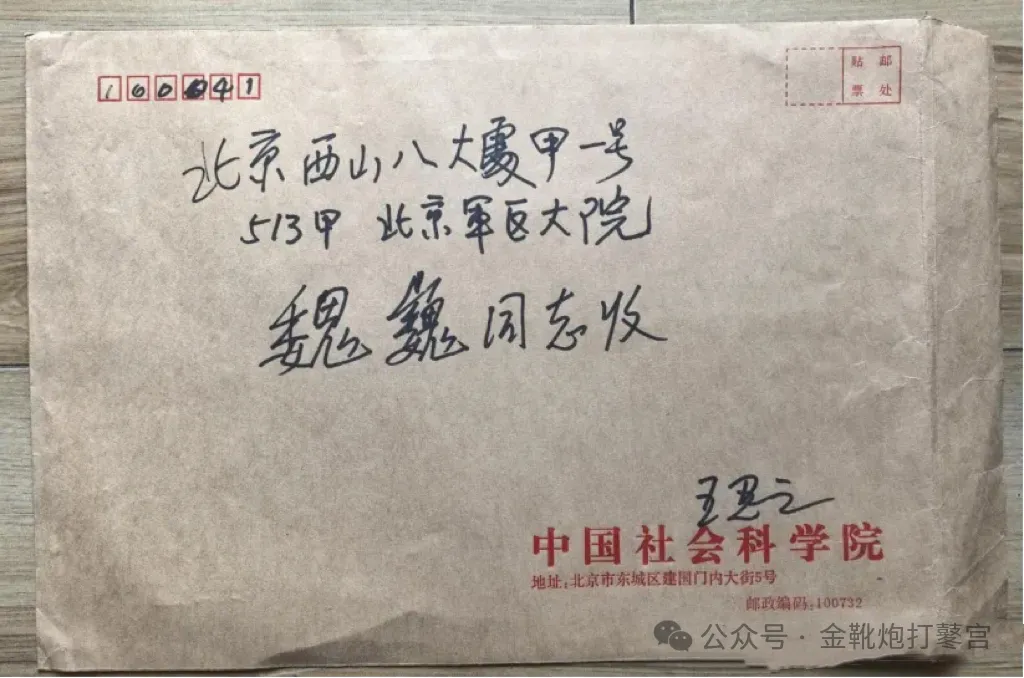 100041
贴邮
票处
北京西山八大處甲一号
513甲 北京軍区大院
魏巍同志收
王思之
中国社会科学院
地址:北京市东城区建国门内大街5号
邮政编码:100732
公众号·金靴炮打鼕宫